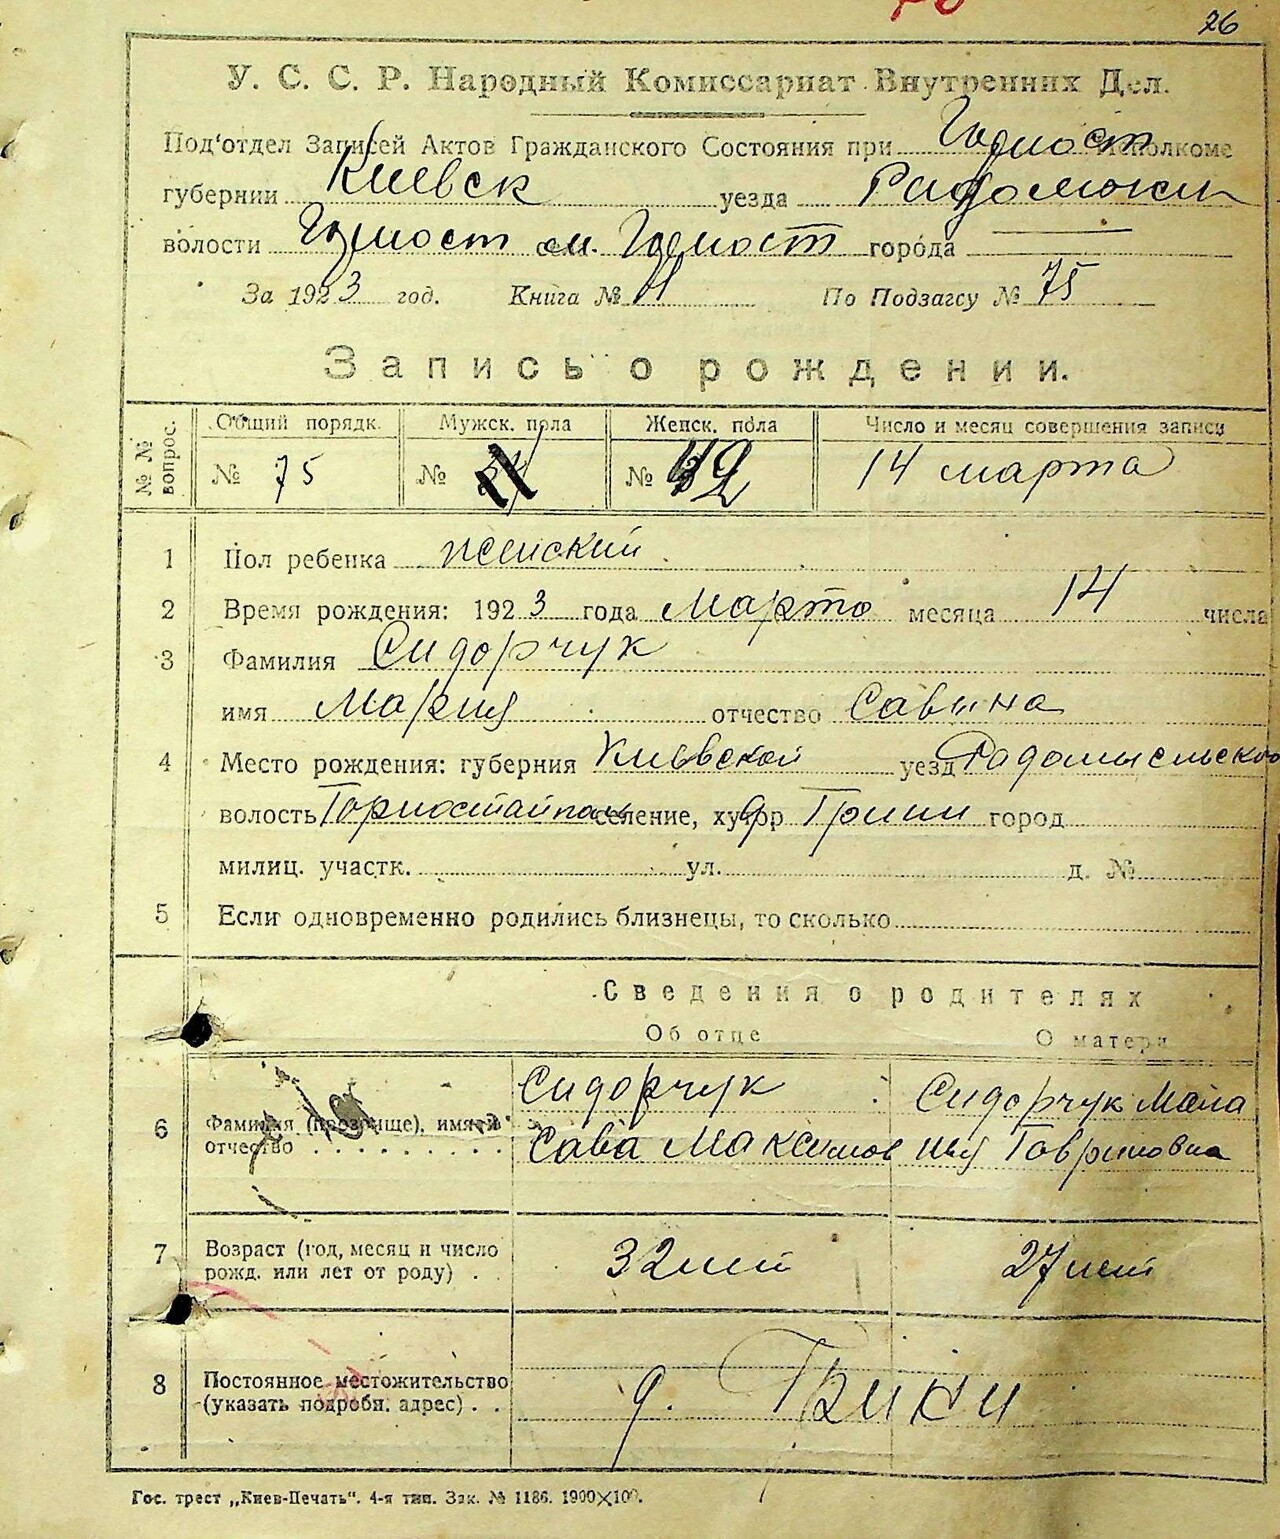 26
У. С. С. Р. Народный Комиссариат Внутренних Дел.
Под'отдел Записей Актов Гражданского Состояния при исполкоме
губернии Киевск уезда
волости города
За 1923 год. Книга № По Подзагсу № 75
Запись о рождении.
№ № вопрос. Общий порядк. Мужск. пола Женск. пола Число и месяц совершения записи
№ 75 № № 42 14 марта
1 Пол ребенка женский
2 Время рождения: 1923 года Марта месяца 14 числа
3 Фамилия Сидорчук
имя Мария отчество Савина
4 Место рождения: губерния Киевской уезд Радомысльско
волость Горностайполь селение, хутор д Грини город
милиц. участк. ул. д. №
5 Если одновременно родились близнецы, то сколько
Сведения о родителях
Об отце О матери
6 Фамилия (прозвище), имя и отчество Сидорчук Сава Максимов Сидорчук Мала ния Гавриловна
7 Возраст (год, месяц и число рожд. или лет от роду) 32 лет 27 лет
8 Постоянное местожительство (указать подробн. адрес) д. Грини
Гос. трест „Киев-Печать“. 4-я тип. Зак. № 1186. 1900×100.